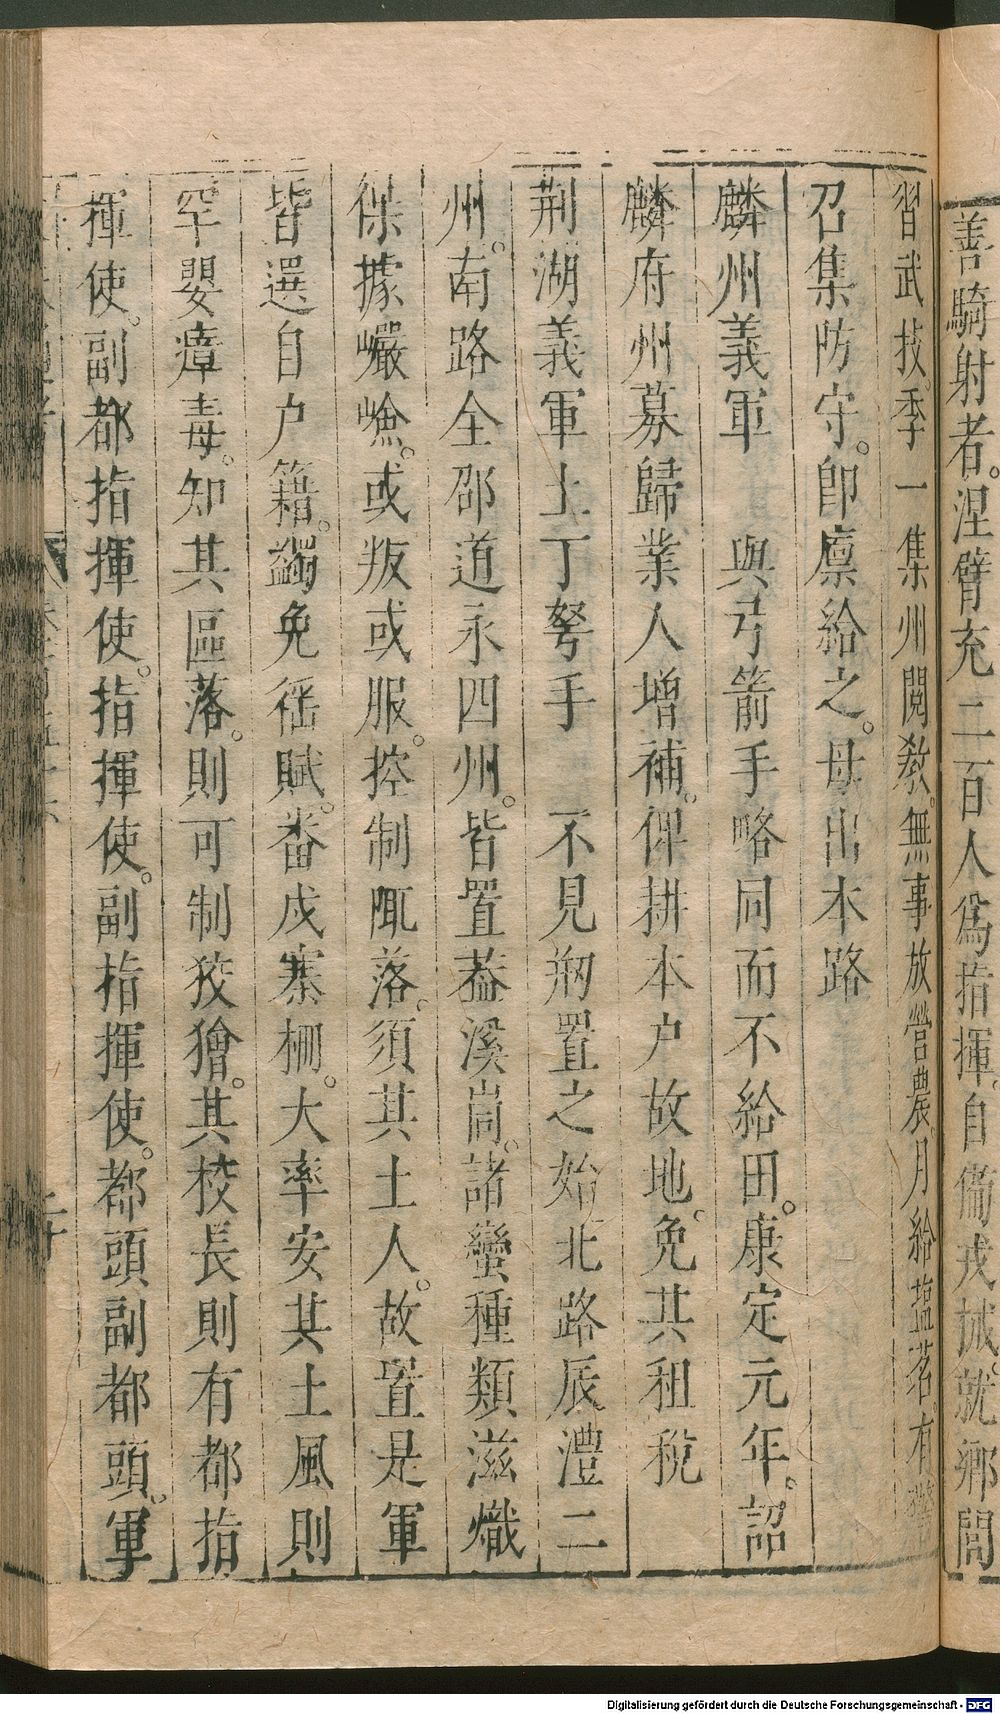 善騎射者。涅臂充二百人爲指揮。自備戎械。就鄉閭
習武技。季一集州閱教。無事放營農。月給鹽茗。有警
召集防守。卽廪給之。毋出本路
麟州義軍　與弓箭手略同而不給田。康定元年。詔
麟府州募歸業人增補。俾耕本户故地。免其租稅
荆湖義軍土丁弩手　不見剏置之始北路辰澧二
州。南路全邵道永四州。皆置葢溪峝。諸蠻種類滋熾
保據巗嶮。或叛或服。控制陬落。須其土人。故置是軍
皆選自户籍。蠲免徭賦。番戍寨栅。大率安其土風則
罕嬰瘴毒。知其區落。則可制狡獪。其校長則有都指
揮使。副都指揮使。指揮使。副指揮使。都頭副都頭。軍
Digitalisierung gefördert durch die Deutsche Forschungsgemeinschaft - DFG